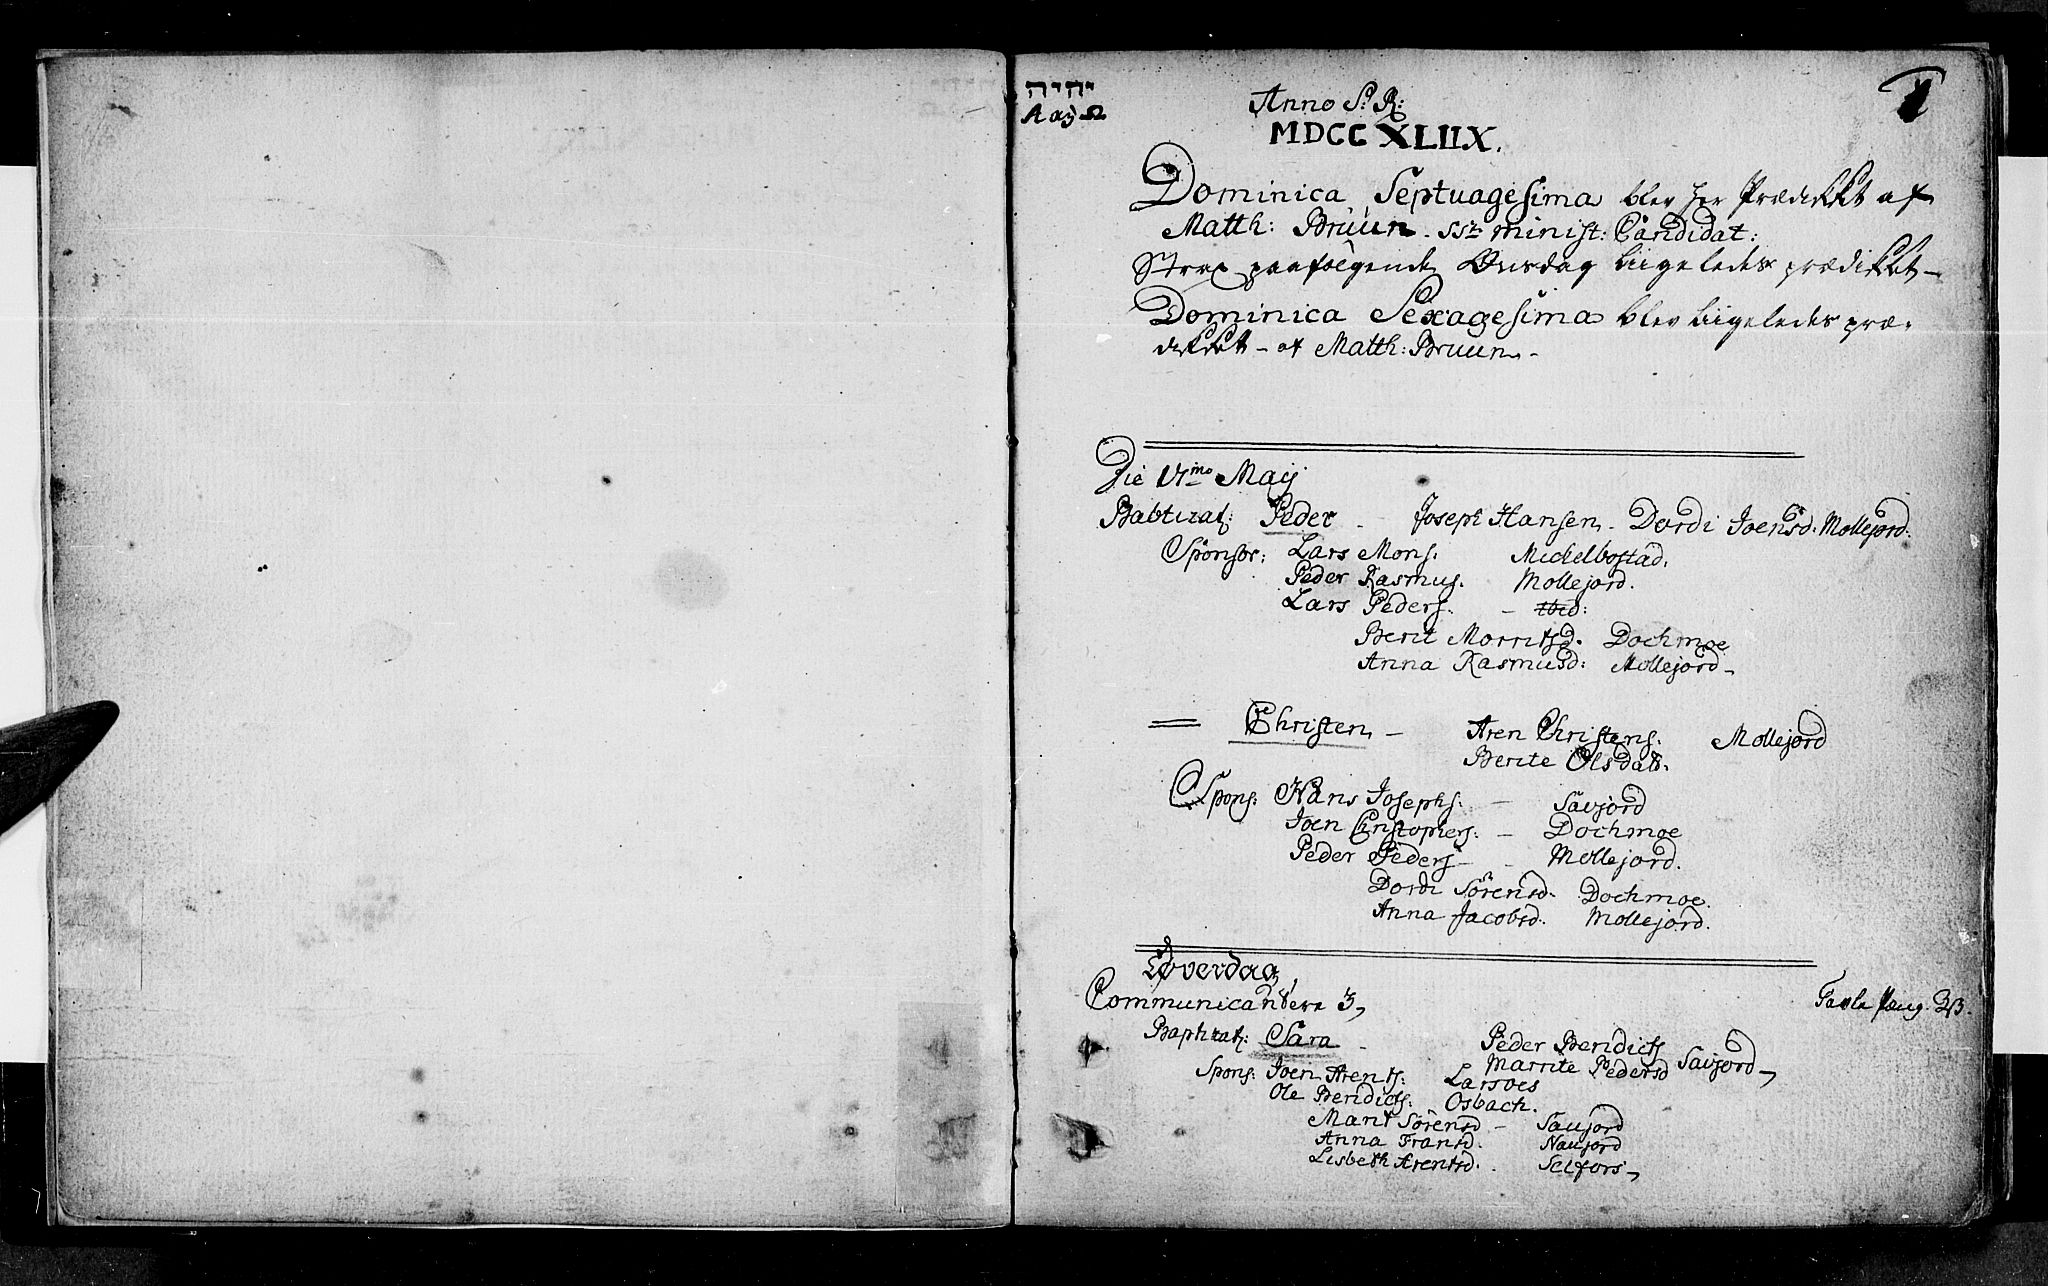 יהיה
A og Ω
Anno S: R:
1
MDCCXLIIX.
Dominica Septuagesima blev her Prædikket af
Matth: Bruun. SSæ minist: Candidat:
Strax paafølgende Onsdag liigeledes prædikket –
Dominica Sexagesima blev liigeledes præ-
dikket – af Matth: Bruun. –
Die 17mo Maij
Babtizat: Peder – Joseph Hansen. Dordi Joensd. Mollejord.
Sponsor: Lars Mons. Michelbostad.
Peder Rasmus. Mollejord.
Lars Peders. – ibid:
Berit Morritsd. Dochmoe
Anna Rasmusd: Mollejord –
= Christen – Aren Christens. Mollejord
Berite Olsdat.
Spons: Hans Josephs. – Savjord
Joen Christophers. – Dochmoe
Peder Peders – – Mollejord.
Dordi Sörensd. Dochmoe.
Anna Jacobsd. Mollejord.
Löverdag,
Communicantere 3, Tavle Pæng. 2
Baptizat: Sara – Peder Bendicts
Marrite Pedersd Savjord,
Spons: Joen Arents: Larsoes
Ole Bendicts: Osbach.
Marit Sörensd – Saujord
Anna Fransd. Naujord
Lisbeth Arentsd. Selfors,